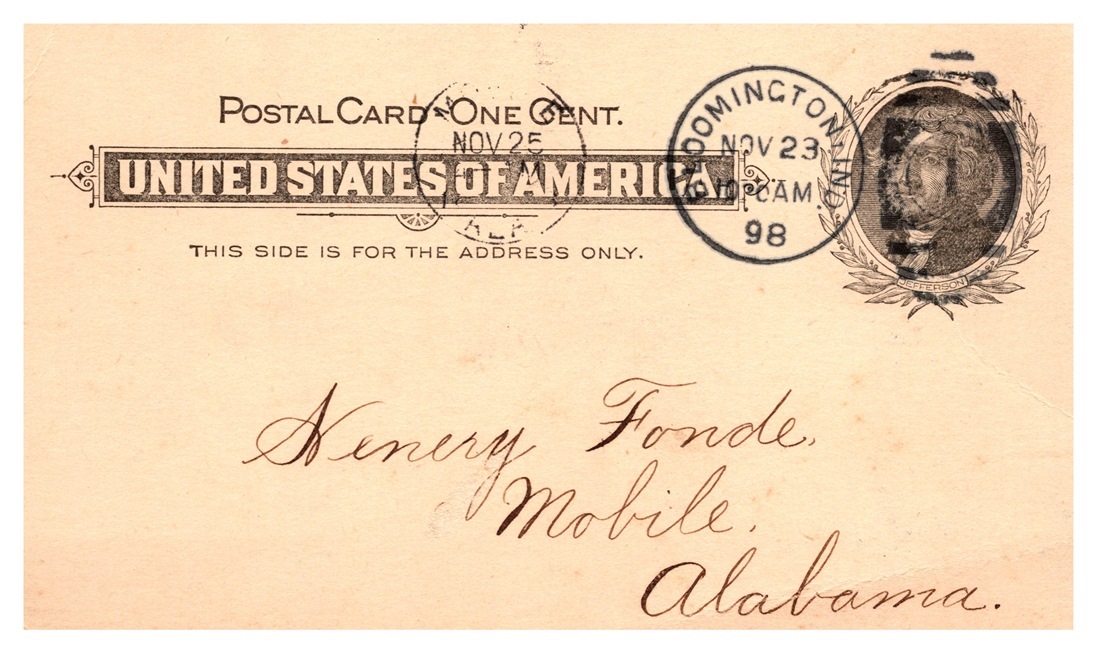 POSTAL CARD-ONE CENT.
UNITED STATES OF AMERICA
THIS SIDE IS FOR THE ADDRESS ONLY.
NOV 25
BLOOMINGTON IND.
NOV 23
AM
98
JEFFERSON
Henery Fonde.
Mobile.
Alabama.